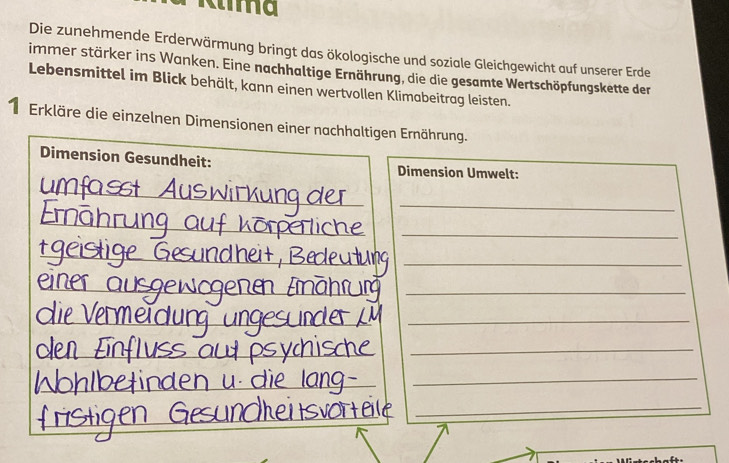 Klima
Die zunehmende Erderwärmung bringt das ökologische und soziale Gleichgewicht auf unserer Erde
immer stärker ins Wanken. Eine nachhaltige Ernährung, die die gesamte Wertschöpfungskette der
Lebensmittel im Blick behält, kann einen wertvollen Klimabeitrag leisten.
1 Erkläre die einzelnen Dimensionen einer nachhaltigen Ernährung.
Dimension Gesundheit:
umfasst Auswirkung der
Ernährung auf körperliche
+geistige Gesundheit, Bedeutung
einer ausgewogenen Ernährung
die Vermeidung ungesunder LM
den Einfluss auf psychische
Wohlbefinden u. die lang-
fristigen Gesundheitsvorteile
Dimension Umwelt: